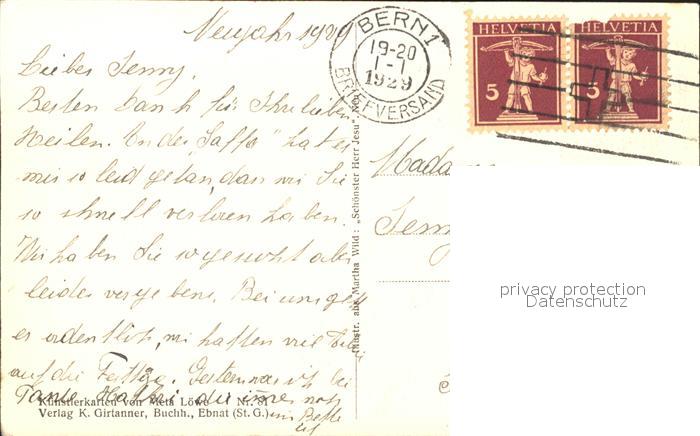 Neujahr 1929
Liebes Jenny,
Besten Dank für Ihre lieben
Zeilen. In der "Saffa" hat es
mir so leid getan, dass wir Sie
so schnell verloren haben.
Wir haben Sie so gesucht aber
leider vergebens. Bei uns geht
es ordentlich, wir hatten viel
auf die Festtage. Gestern war ich bei
Tante die immer noch
im Bette
ist
Künstlerkarten von Meta Löwe Nr. 81
Verlag K. Girtanner, Buchh., Ebnat (St. G.)
Illustr. aus Martha Wild: „Schönster Herr Jesu".
BERN 1
19-20
1-I
1929
BRIEFVERSAND
HELVETIA
5
HELVETIA
5
Mada
Jenn
privacy protection
Datenschutz